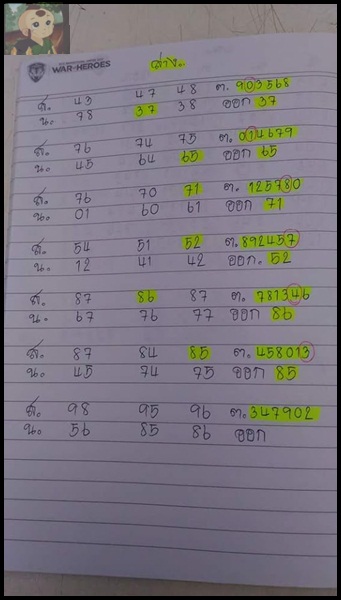 WAR-HEROES
ล่าง..
ส. 43 47 48 ต. 903568
น. 78 37 38 ออก 37
ส. 76 74 75 ต. 014679
น. 45 64 65 ออก 65
ส. 76 70 71 ต. 125780
น. 01 60 61 ออก 71
ส. 54 51 52 ต. 892457
น. 12 41 42 ออก. 52
ส. 87 86 87 ต. 781346
น. 67 76 77 ออก 86
ส. 87 84 85 ต. 458013
น. 45 74 75 ออก 85
ส. 98 95 96 ต. 347902
น. 56 85 86 ออก